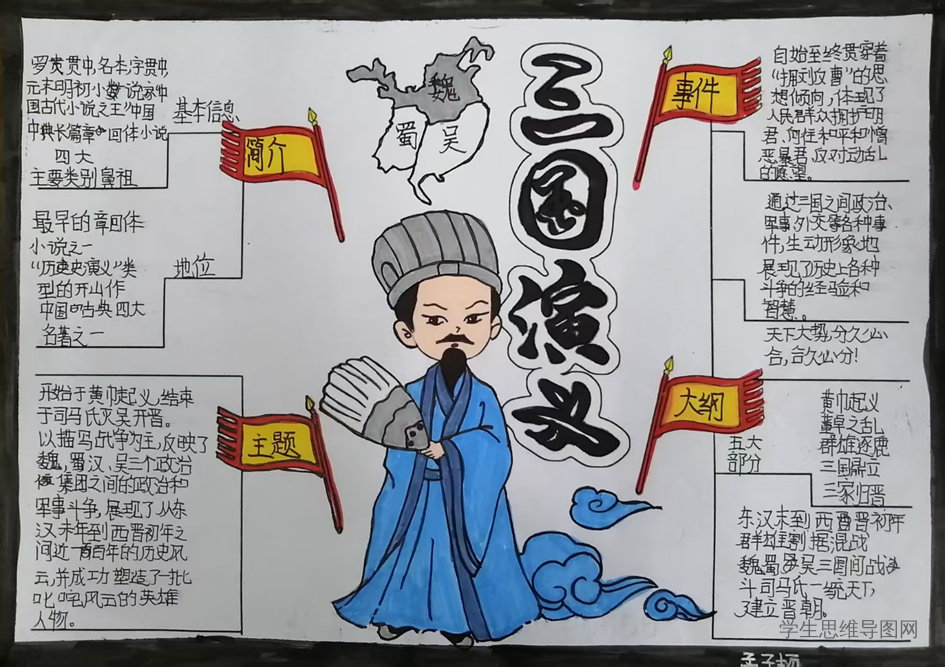 三国演义
魏
蜀
吴
简介
基本信息
罗贯中,名本,字贯中
元末明初小说家
国古代小说之王"中国
长篇章回体小说
四大
主要类别鼻祖
地位
最早的章回体
小说之一
"历史演义"类
型的开山作
中国古典四大
名著之一
主题
开始于黄巾起义,结束
于司马氏灭吴开晋。
以描写战争为主,反映了
魏,蜀汉、吴三个政治
集团之间的政治和
军事斗争,展现了从东
汉末年到西晋初年之
间近一百年的历史风
云,并成功塑造了一批
叱咤风云的英雄
人物。
事件
自始至终贯穿着
"拥刘反曹"的思
想倾向,体现了
人民群众拥护明
君、向往和平和憎
恶暴君、反对动乱
的愿望。
通过三国之间政治、
军事、外交等各种事
件,生动形象地
展现了历史上各种
斗争的经验和
智慧。
天下大势,分久必
合,合久必分!
大纲
五大
部分
黄巾起义
董卓之乱
群雄逐鹿
三国鼎立
三家归晋
东汉末到西晋初年
群雄割据混战
魏蜀吴三国间战
斗司马氏一统天下
建立晋朝。
学生思维导图网